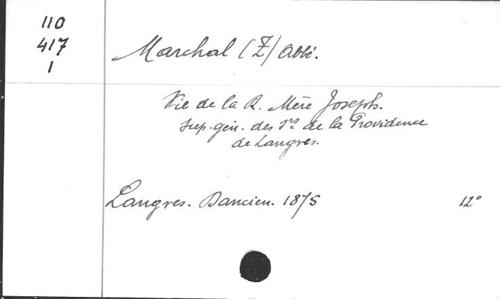 110
417
1
Marchal (Z) Abbé.
Vie de la R. Mère Joseph.
sup. gén. des Srs de la Providence
de Langres.
Langres. Dancien. 1875 12°